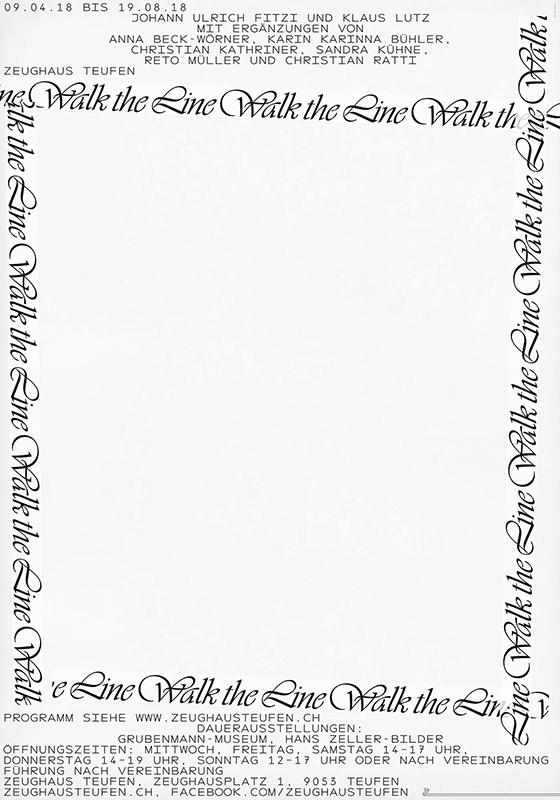 09.04.18 BIS 19.08.18
JOHANN ULRICH FITZI UND KLAUS LUTZ
MIT ERGÄNZUNGEN VON
ANNA BECK-WÖRNER, KARIN KARINNA BÜHLER,
CHRISTIAN KATHRINER, SANDRA KÜHNE,
RETO MÜLLER UND CHRISTIAN RATTI
ZEUGHAUS TEUFEN
ne Walk the Line Walk the Line Walk th
alk the Line Walk the Line Walk the Line Walk
Line Walk the Line Walk the Line Walk the Line Walk
e Line Walk the Line Walk the Lin
PROGRAMM SIEHE WWW.ZEUGHAUSTEUFEN.CH
DAUERAUSSTELLUNGEN:
GRUBENMANN-MUSEUM, HANS ZELLER-BILDER
ÖFFNUNGSZEITEN: MITTWOCH, FREITAG, SAMSTAG 14-17 UHR,
DONNERSTAG 14-19 UHR, SONNTAG 12-17 UHR ODER NACH VEREINBARUNG
FÜHRUNG NACH VEREINBARUNG
ZEUGHAUS TEUFEN, ZEUGHAUSPLATZ 1, 9053 TEUFEN
ZEUGHAUSTEUFEN.CH, FACEBOOK.COM/ZEUGHAUSTEUFEN